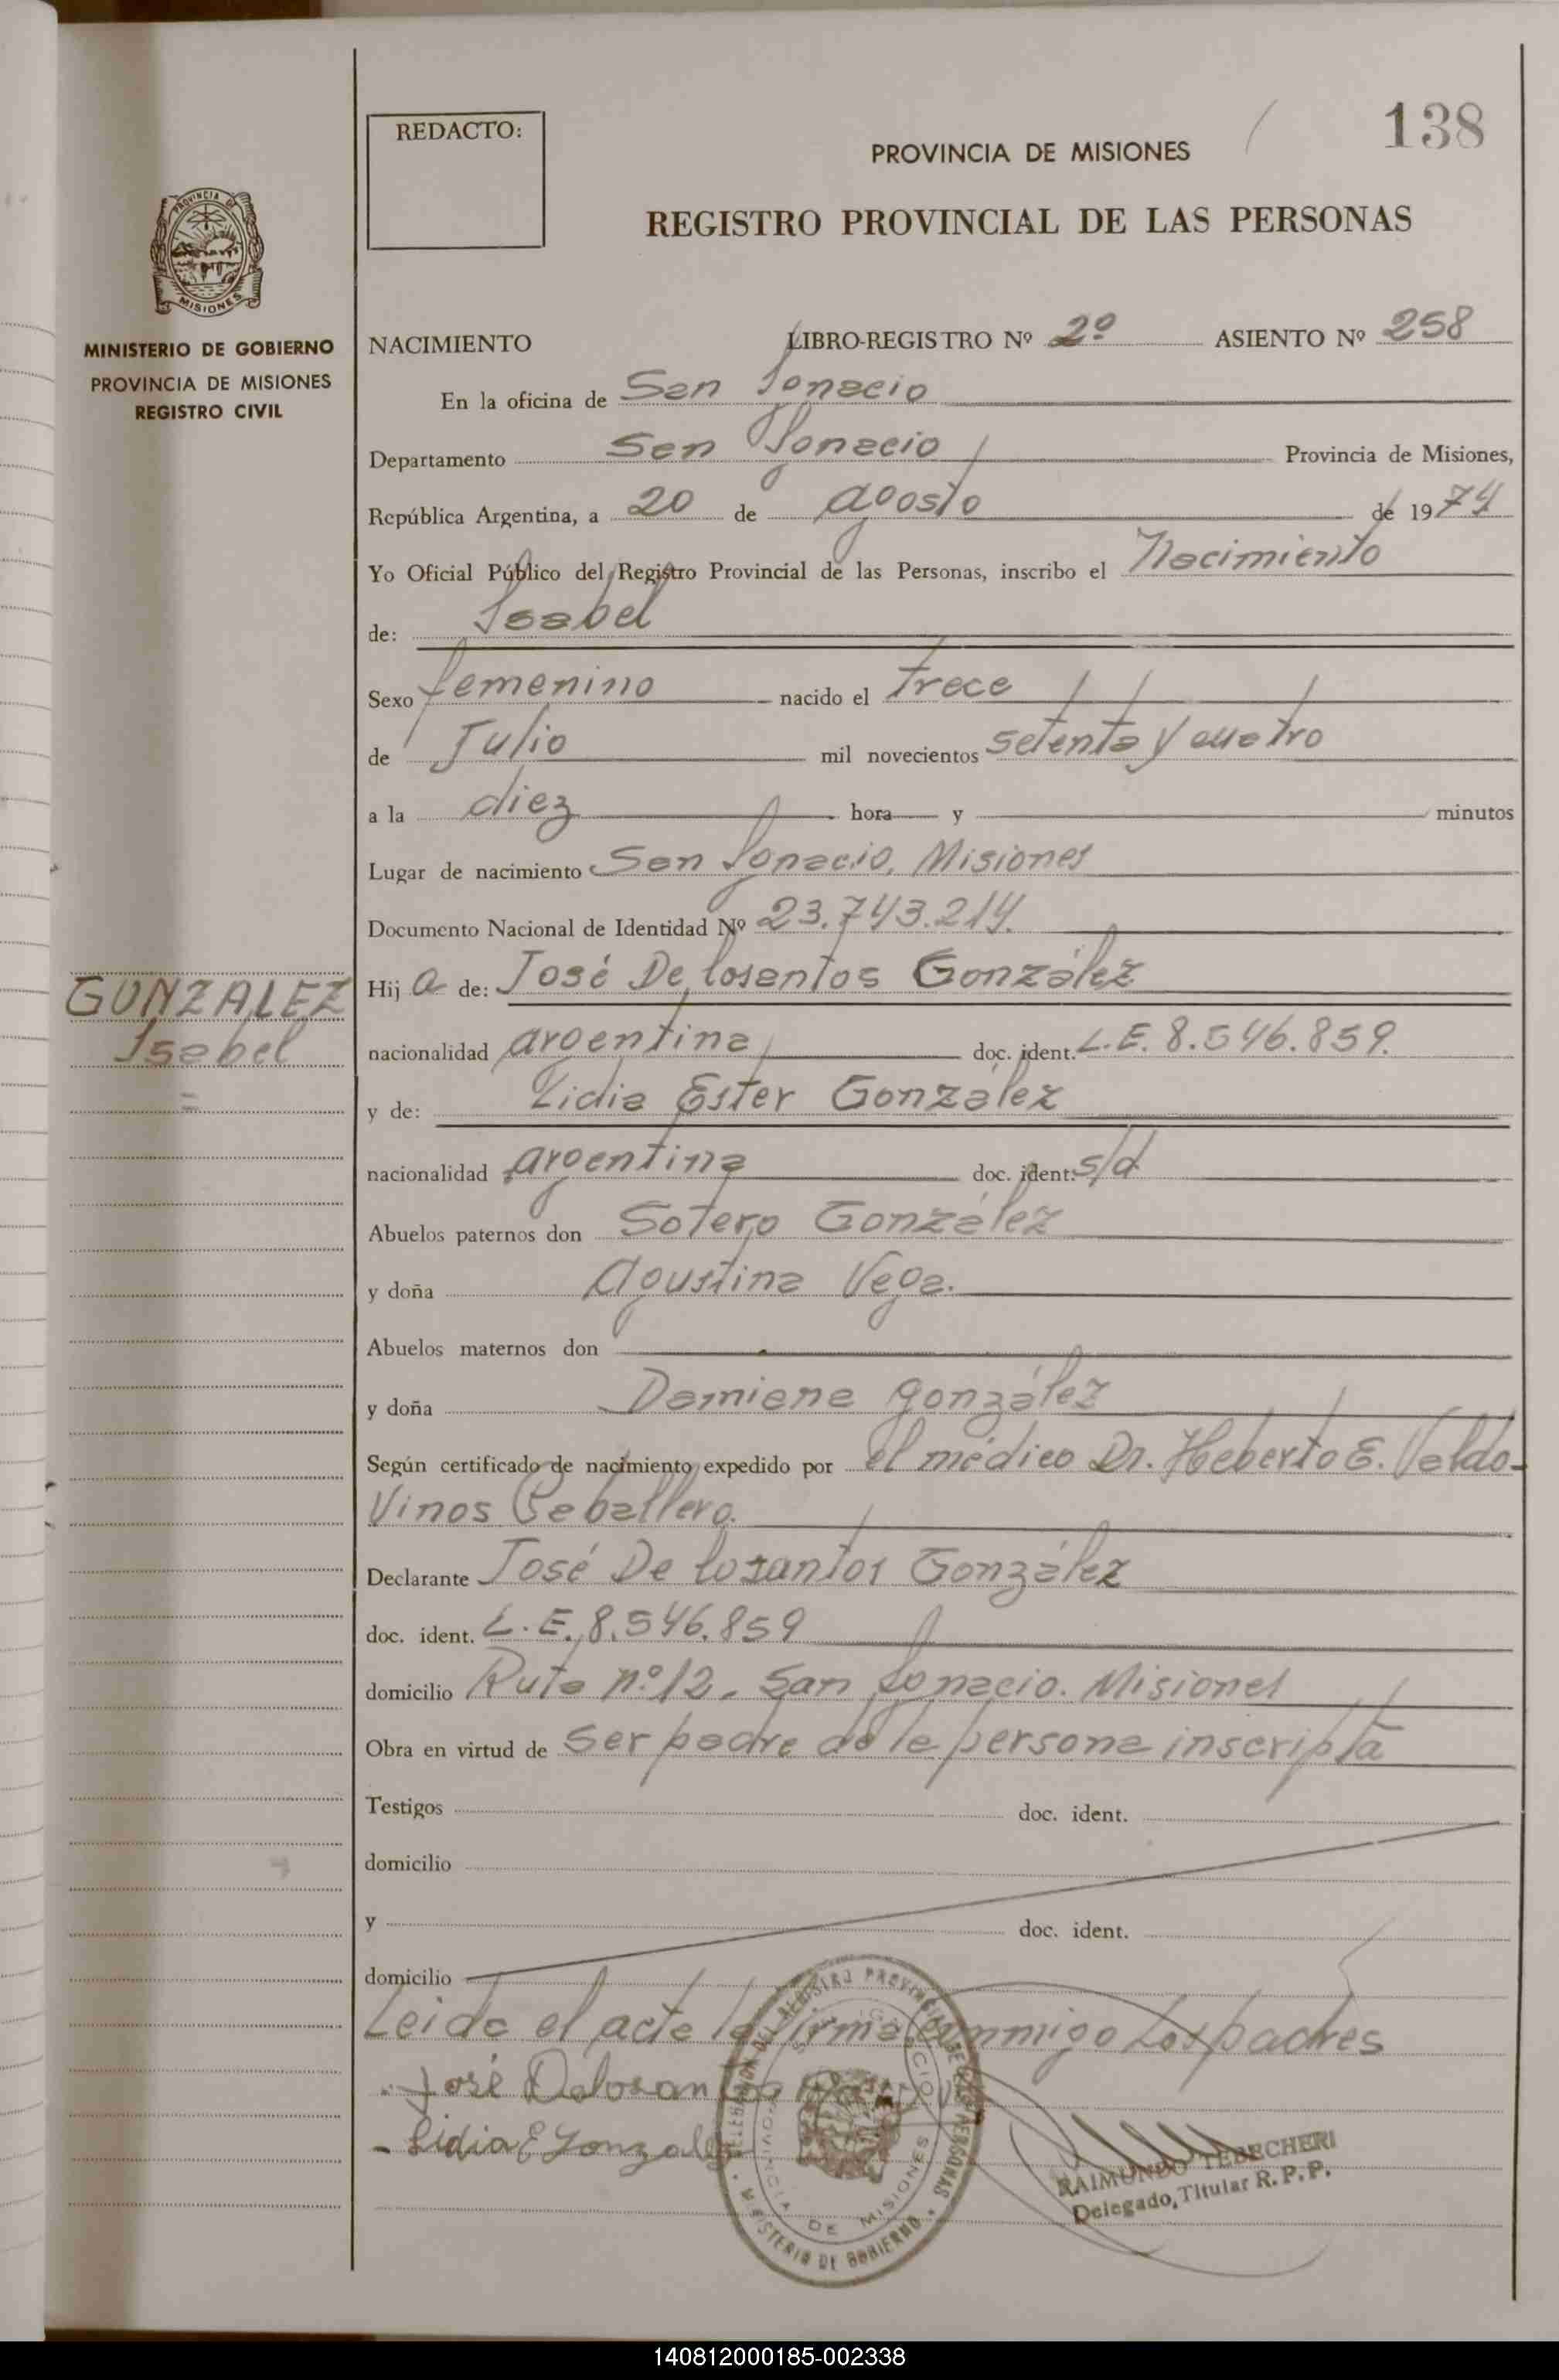 138
REDACTO:
PROVINCIA DE MISIONES
REGISTRO PROVINCIAL DE LAS PERSONAS
PROVINCIA DE
MISIONES
MINISTERIO DE GOBIERNO
PROVINCIA DE MISIONES
REGISTRO CIVIL
NACIMIENTO LIBRO-REGISTRO Nº 2º ASIENTO Nº 258
En la oficina de San Ignacio
Departamento San Ignacio Provincia de Misiones,
República Argentina, a 20 de agosto de 1974
Yo Oficial Público del Registro Provincial de las Personas, inscribo el Nacimiento
de: Isabel
Sexo femenino nacido el trece
de Julio mil novecientos setenta y cuatro
a la diez hora y minutos
Lugar de nacimiento San Ignacio, Misiones
Documento Nacional de Identidad Nº 23.743.214.
GONZALEZ
Isabel
Hij a de: José De losantos González
nacionalidad argentina doc. ident. L.E. 8.546.859.
y de: Lidia Ester González
nacionalidad argentina doc. ident. s/d
Abuelos paternos don Sotero González
y doña Agustina Vega.
Abuelos maternos don
y doña Damiana González
Según certificado de nacimiento expedido por el médico Dr. Heberto E. Valdo-
vinos Caballero.
Declarante José De losantos González
doc. ident. L.E. 8.546.859
domicilio Ruta nº 12. San Ignacio. Misiones
Obra en virtud de ser padre de la persona inscripta
Testigos doc. ident.
domicilio
y doc. ident.
domicilio
Leida el acta la firma conmigo Los padres
José Delosantos
Lidia E Gonzalez
DELEGACION DEL REGISTRO PROVINCIAL DE LAS PERSONAS
SAN IGNACIO
PROVINCIA DE MISIONES
MINISTERIO DE GOBIERNO
RAIMUNDO TEBERCHERI
Delegado, Titular R. P. P.
140812000185-002338